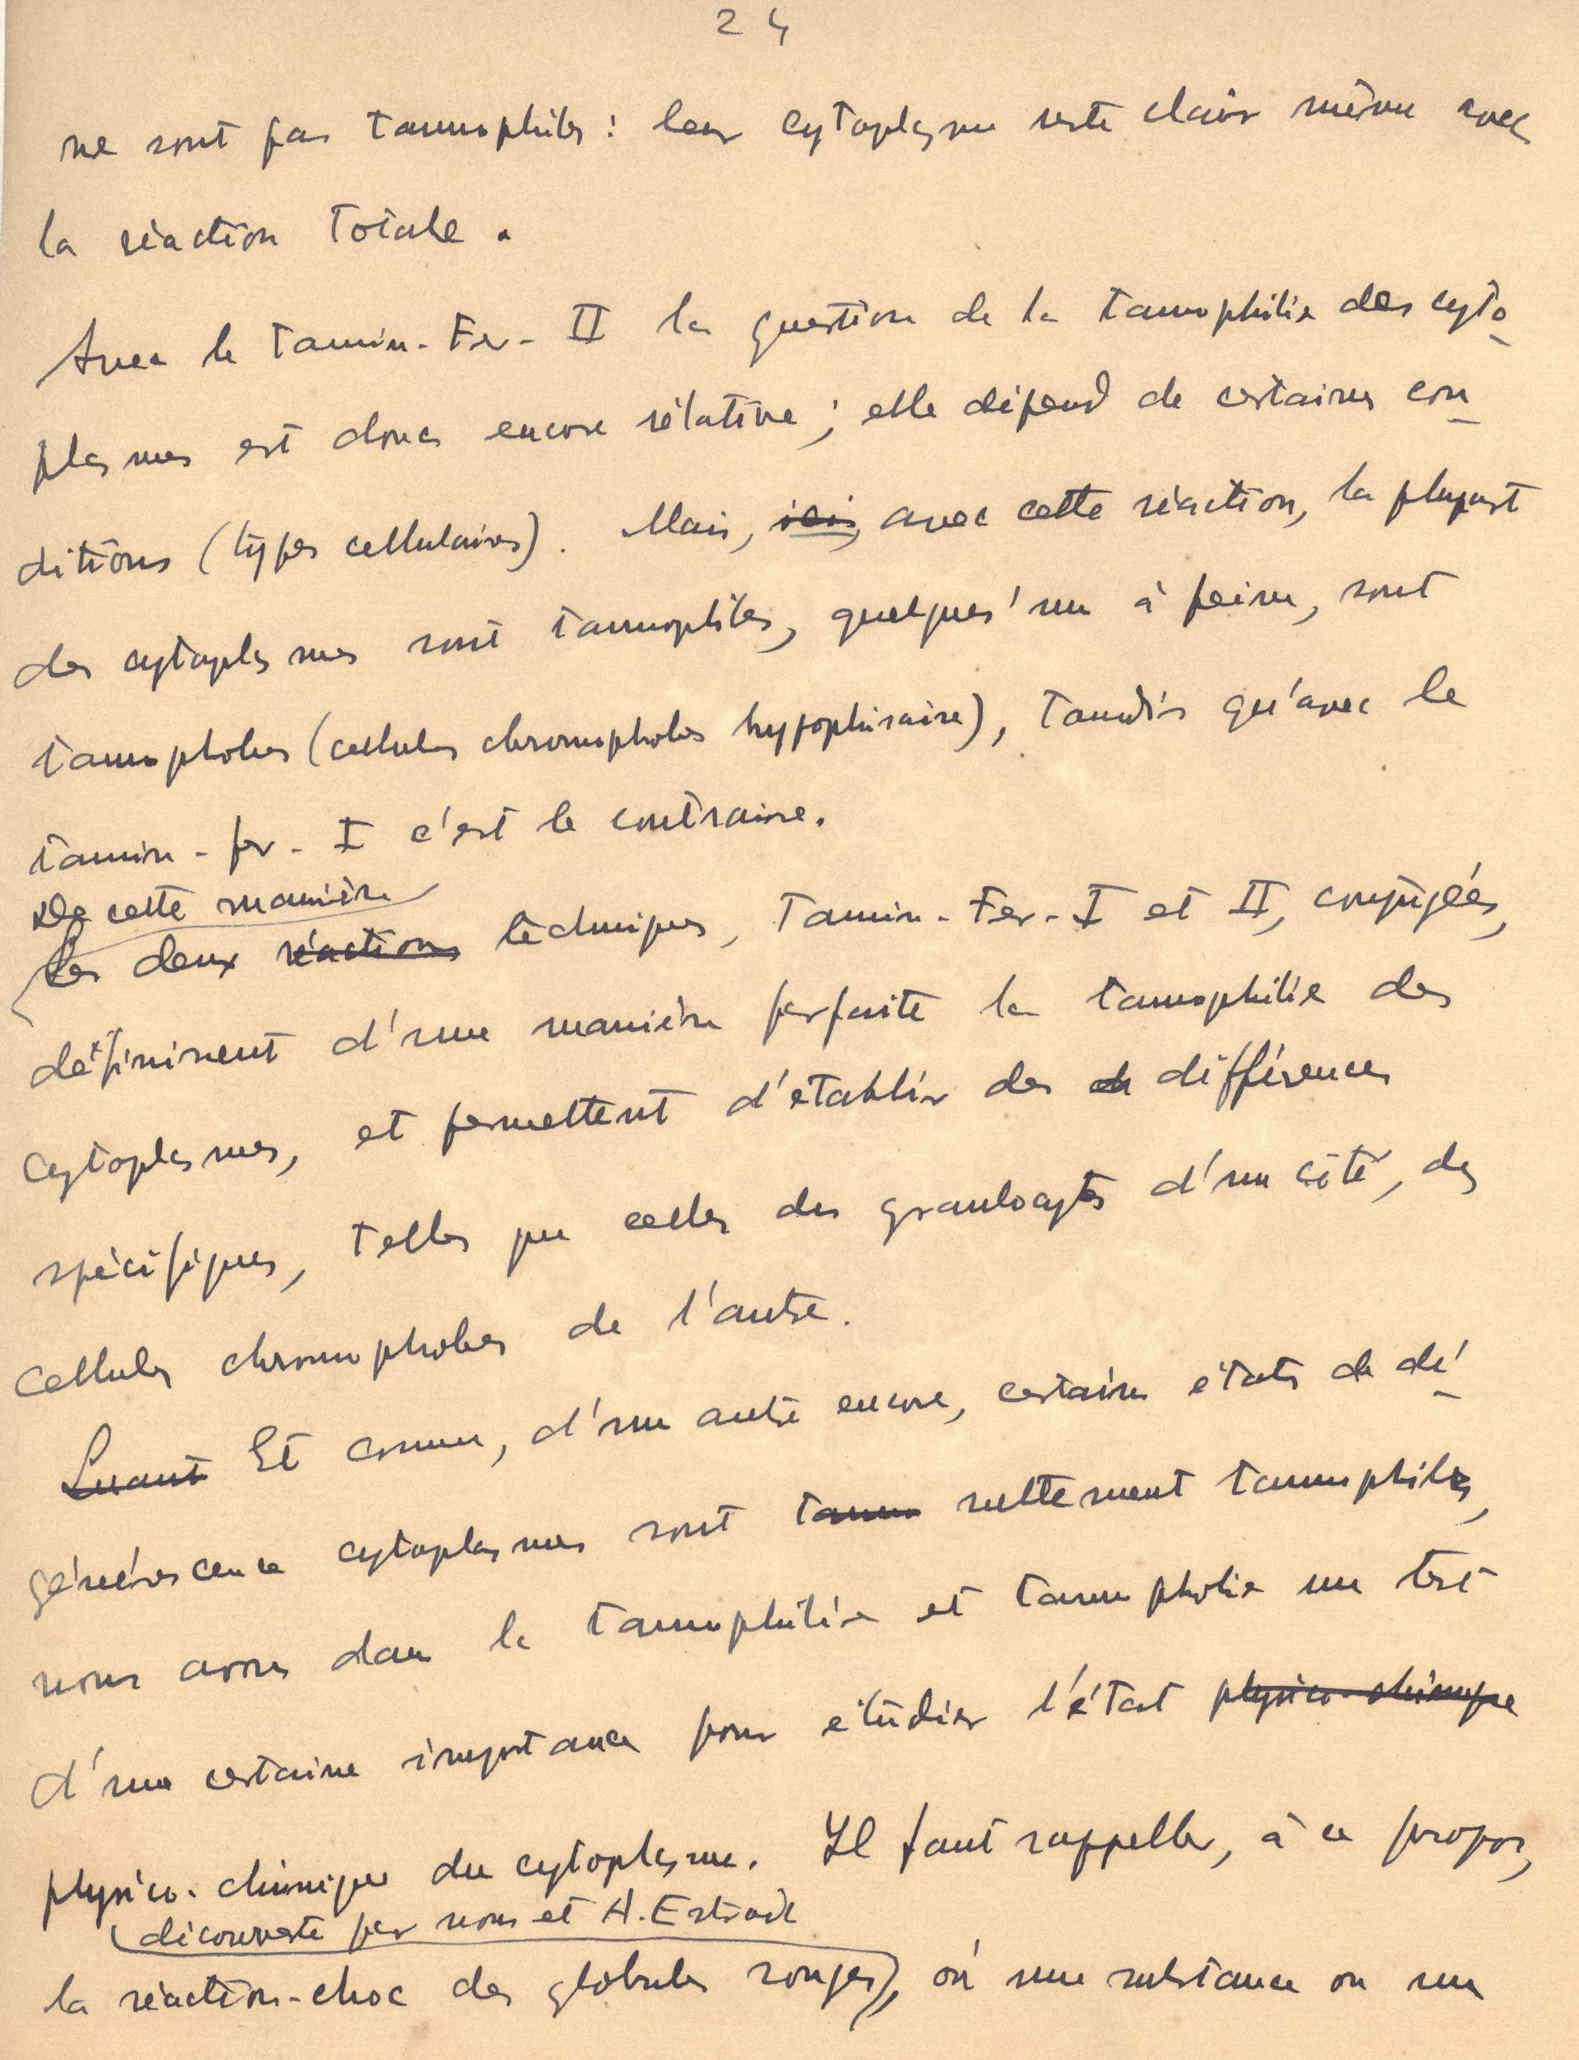 24
ne sont pas tannophiles : leur cytoplasme reste clair même avec
la réaction totale.
Avec le Tannin-Fer-II la question de la tannophilie des cyto-
plasmes est donc encore rélative ; elle dépend de certaines con-
ditions (types cellulaires). Mais, ici, avec cette réaction, la plupart
des cytoplasmes sont tannophiles, quelques'un à peine, sont
tannophobes (cellules chromophobes hypophisaire), tandis qu'avec le
tannin-fer-I c'est le contraire.
De cette manière
les deux réactions techniques, Tannin-Fer-I et II, conjugées,
définissent d'une manière parfaite la tannophilie des
cytoplasmes, et permettent d'établir des de différences
spécifiques, telles que celles des granulocytes d'un côté, des
cellules chromophobes de l'autre.
Quant Et comme, d'un autre encore, certains états de dé-
générescence cytoplasmes sont tanno nettement tannophiles,
nous avons dans la tannophilie et tannophobie un test
d'une certaine importance pour étudier l'état physico-chimique
physico-chimique du cytoplasme. Il faut rappeller, à ce propos,
(découverte par nous et A. Estrada
la réaction-choc des globules rouges), où une substance ou un